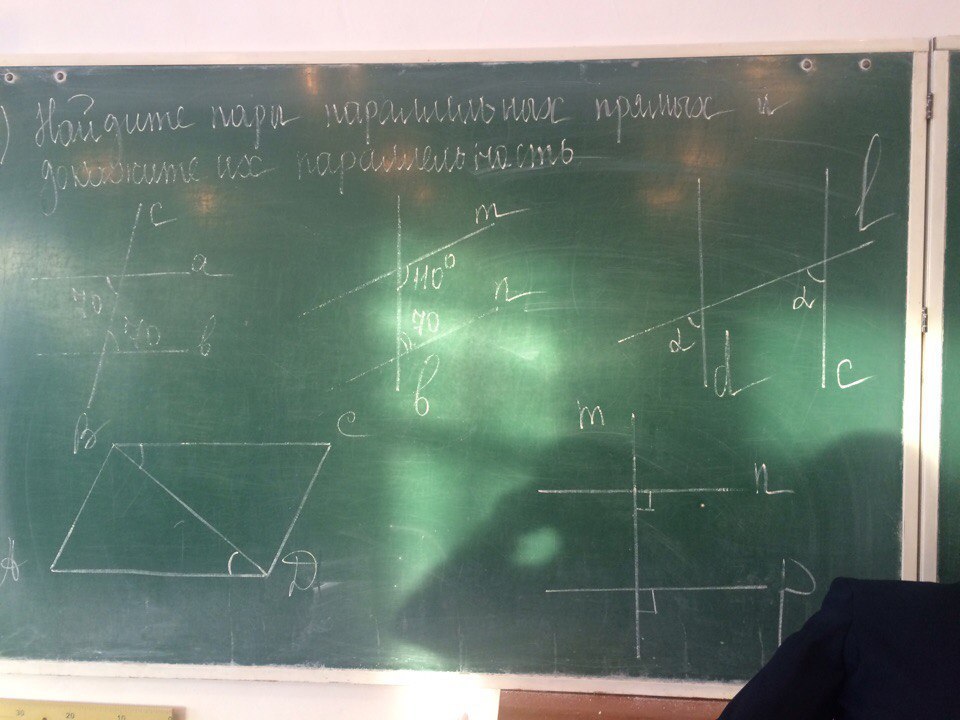 ) Найдите пары параллельных прямых и
докажите их параллельность
c
a
70
70
b
m
110°
n
70
b
l
α
α
d
c
B
C
A
D
m
n
p
30 20 10